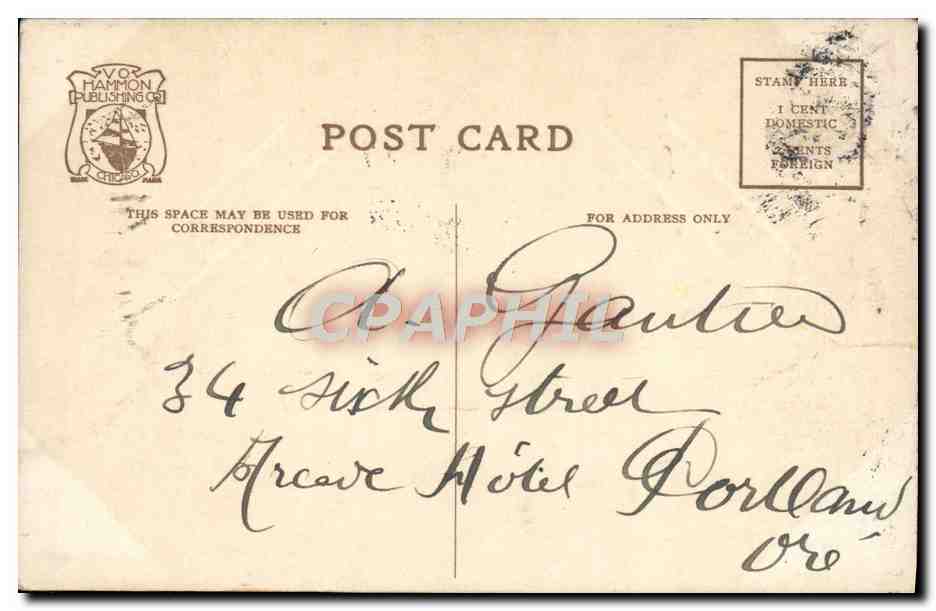 V.O.
HAMMON
PUBLISHING CO.
CHICAGO
TRADE MARK
POST CARD
STAMP HERE
1 CENT
DOMESTIC
2 CENTS
FOREIGN
THIS SPACE MAY BE USED FOR
CORRESPONDENCE
FOR ADDRESS ONLY
A. Gautier
CPAPHIL
34 sixth street
Arcade Hôtel Portland
Ore